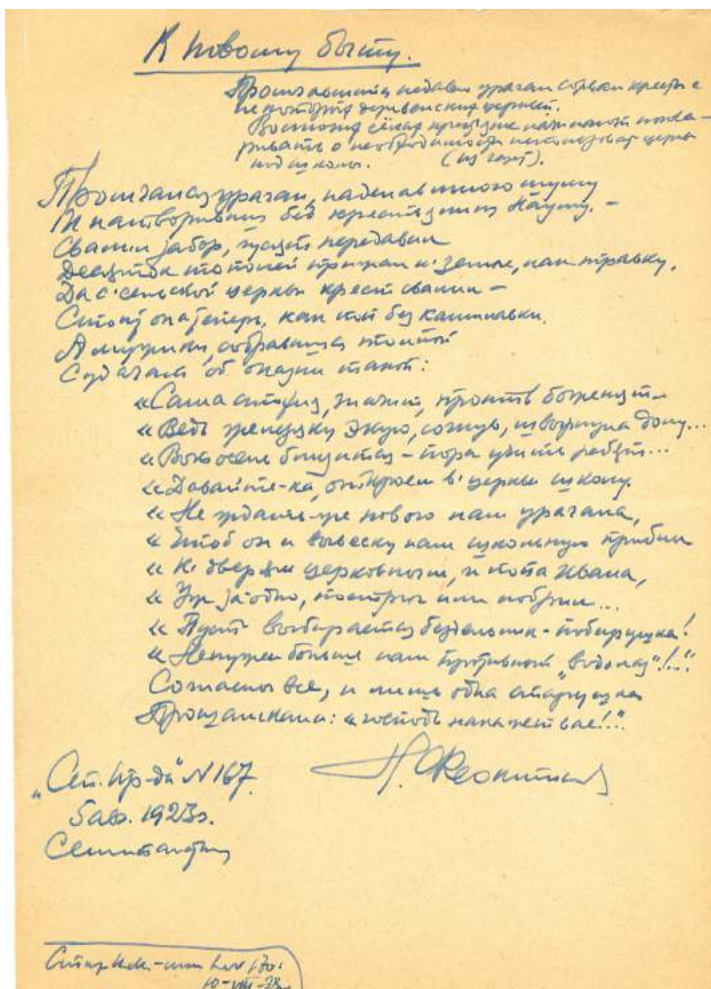 К новому быту.
Промчавшийся недавно ураган сорвал кресты с
некоторых деревенских церквей.
Во многих сёлах крестьяне начинают погова-
ривать о необходимости использовать церкви
под школы. (Из газет).
Промчался ураган, наделав много шуму
И натворивши бед крестьянину Науму. –
Свалил забор, гусят передавил
Десяток тополей прижал к земле, как травку,
Да с сельской церкви крест свалил –
Стоит она теперь, как поп без камилавки.
А мужики, собравшись толпой
Судачат об оказии такой:
«Сама стихия, значит, против божества –
«Ведь
«Вон осень близится – пора учить ребят...
«Давайте-ка, откроем в церкви школу.
«Не ждать-же нового нам урагана,
«Чтоб он и вывеску нам школьную прибил
«К дверям церковным, и попа Ивана,
«Уж заодно, постриг или побрил...
«Пусть выбирается бездельник-побирушка!
«Ненужен больше нам противный „водолаз"!..."
Согласны все, и лишь одна старушка
Прошамкала: «господь накажет вас!.."
№ 167.
5 авг. 1923г.
Семипалатинск
Н. Феоктистов
10-VIII-78